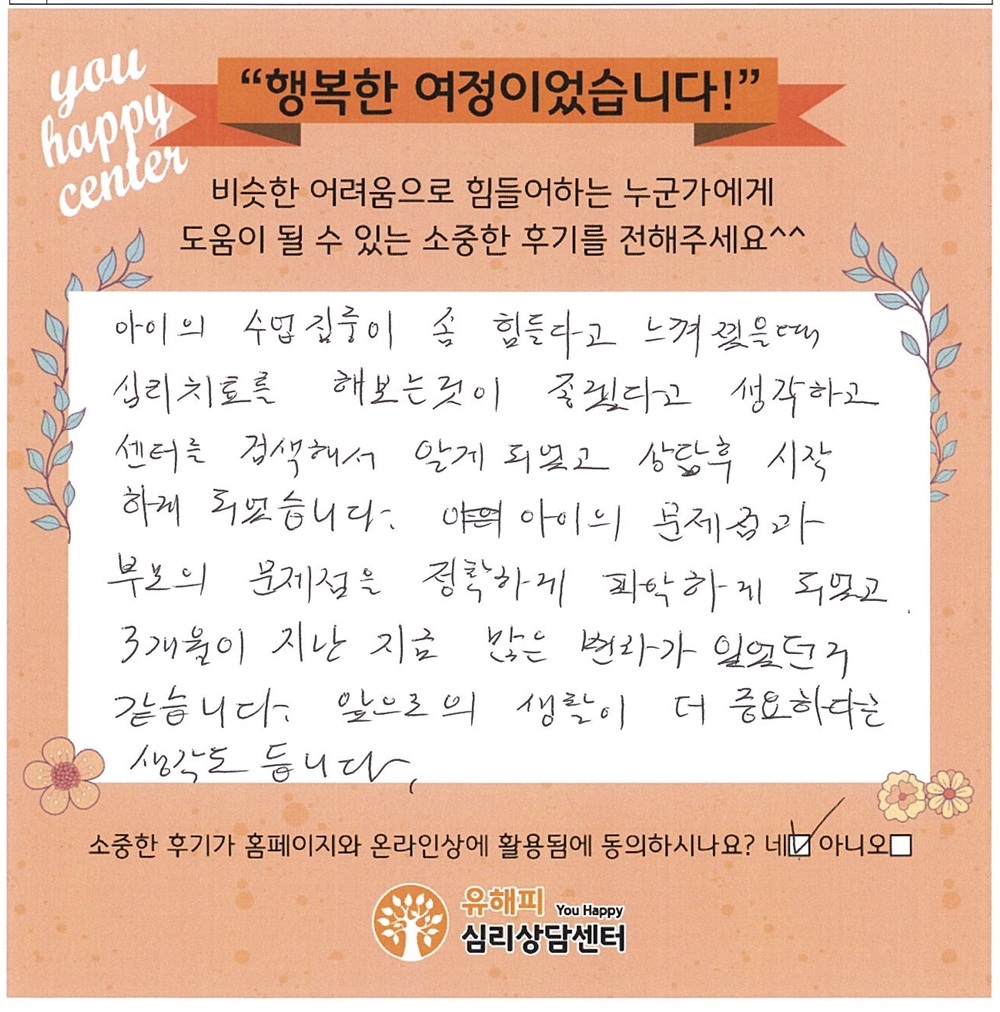 you
happy
center
“행복한 여정이었습니다!”
비슷한 어려움으로 힘들어하는 누군가에게
도움이 될 수 있는 소중한 후기를 전해주세요^^
아이의 수업집중이 좀 힘들다고 느껴졌을때
심리치료를 해보는것이 좋겠다고 생각하고
센터를 검색해서 알게 되었고 상담후 시작
하게 되었습니다. 아이의 문제점과
부모의 문제점을 정확하게 파악하게 되었고
3개월이 지난 지금 많은 변화가 있었던거
같습니다. 앞으로의 생활이 더 중요하다는
생각도 듭니다.
소중한 후기가 홈페이지와 온라인상에 활용됨에 동의하시나요? 네 아니오
유해피 You Happy
심리상담센터